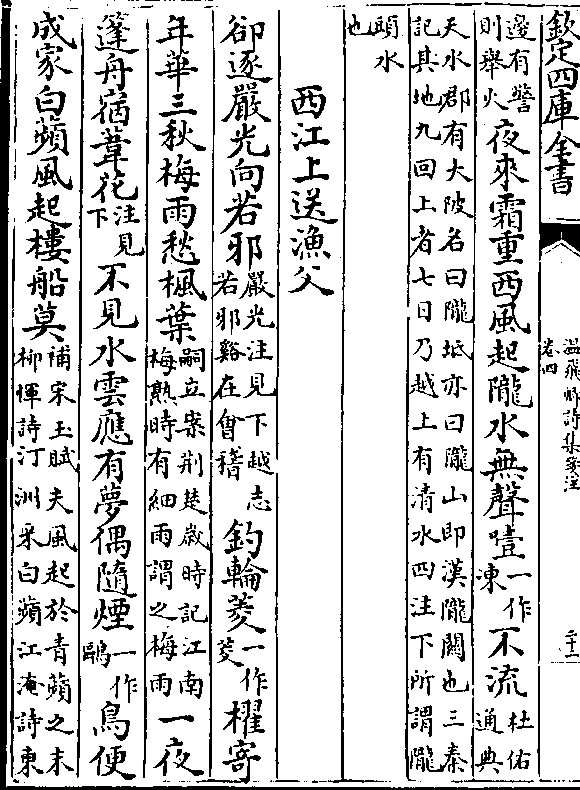 欽定四庫全書
温飛卿詩集箋注
卷四
邊有警則舉火夜來霜重西風起隴水無聲噎一作凍不流杜佑通典
天水郡有大陂名曰隴坻亦曰隴山即漢隴關也三秦
記其地九回上者七日乃越上有清水四注下所謂隴
頭水也
西江上送漁父
卻逐嚴光向若邪嚴光注見下越志若邪谿在會稽釣輪菱一作茭櫂寄
年華三秋梅雨愁楓葉嗣立案荆楚歲時記江南梅熟時有細雨謂之梅雨一夜
篷舟宿葦花注見下不見水雲應有夢偶隨煙一作鷗鳥便
成家白蘋風起樓船莫補宋玉賦夫風起於青蘋之末柳惲詩汀洲采白蘋江淹詩東